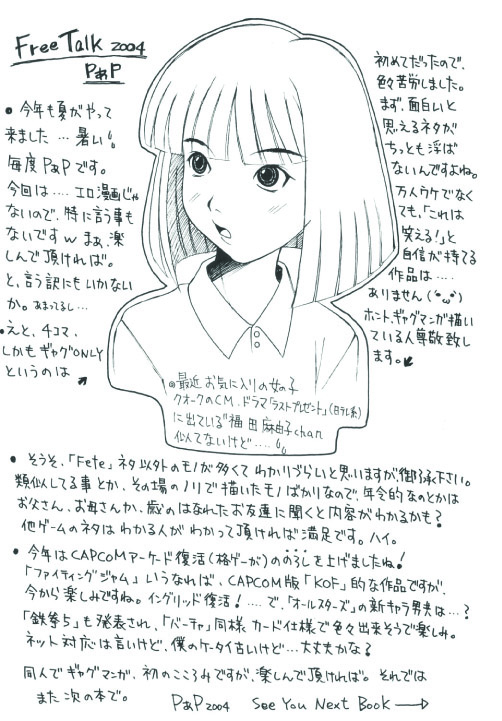 Free Talk 2004
PあP
● 今年も夏がやって
来ました … 暑い
毎度PあPです。
今回は…. エロ漫画じゃ
ないので、特に言う事も
ないですw まぁ、楽
しんで頂ければ。
と、言う訳にもいかない
か。あまってるし…
● えと、4コマ、
しかもギャグONLY
というのは
初めてだったので、
色々苦労しました。
まず、面白いと
思えるネタが
ちっとも浮ば
ないんですよね。
万人ウケでなく
ても、「これは
笑える!」と
自信が持てる
作品は….
ありません(´･ω･`)
ホント、ギャグマンガ描い
ている人尊敬致し
ます。
◎最近 お気に入りの女の子
クオークのCM、ドラマ「ラストプレゼント」(日テレ系)
に出ている"福田麻由子chan
似てないけど…..
● そうそ、「Fete」ネタ以外のモノが多くてわかりづらいと思いますが、御了承下さい。
類似してる事とか、その場のノリで描いたモノばかりなので、年令的なのとかは
お父さん、お母さんか、歳のはなれたお友達に聞くと内容がわかるかも?
他ゲームのネタはわかる人がわかって頂ければ満足です。ハイ。
● 今年はCAPCOMアーケード復活(格ゲーが)ののろしを上げましたね!
「ファイティングジャム」いうなれば、CAPCOM版「KOF」的な作品ですが、
今から楽しみですね。イングリッド復活!…. で、「オールスターズ」の新キャラ男夫は…?
「鉄拳5」も発表され、「バーチャ」同様 カード仕様で色々出来そうで楽しみ。
ネット対応は言いけど、僕のケータイ古いけど…大丈夫かな?
同人でギャグマンガ、初のこころみですが、楽しんで頂ければ。それでは
また次の本で。 PあP2004 See You Next Book